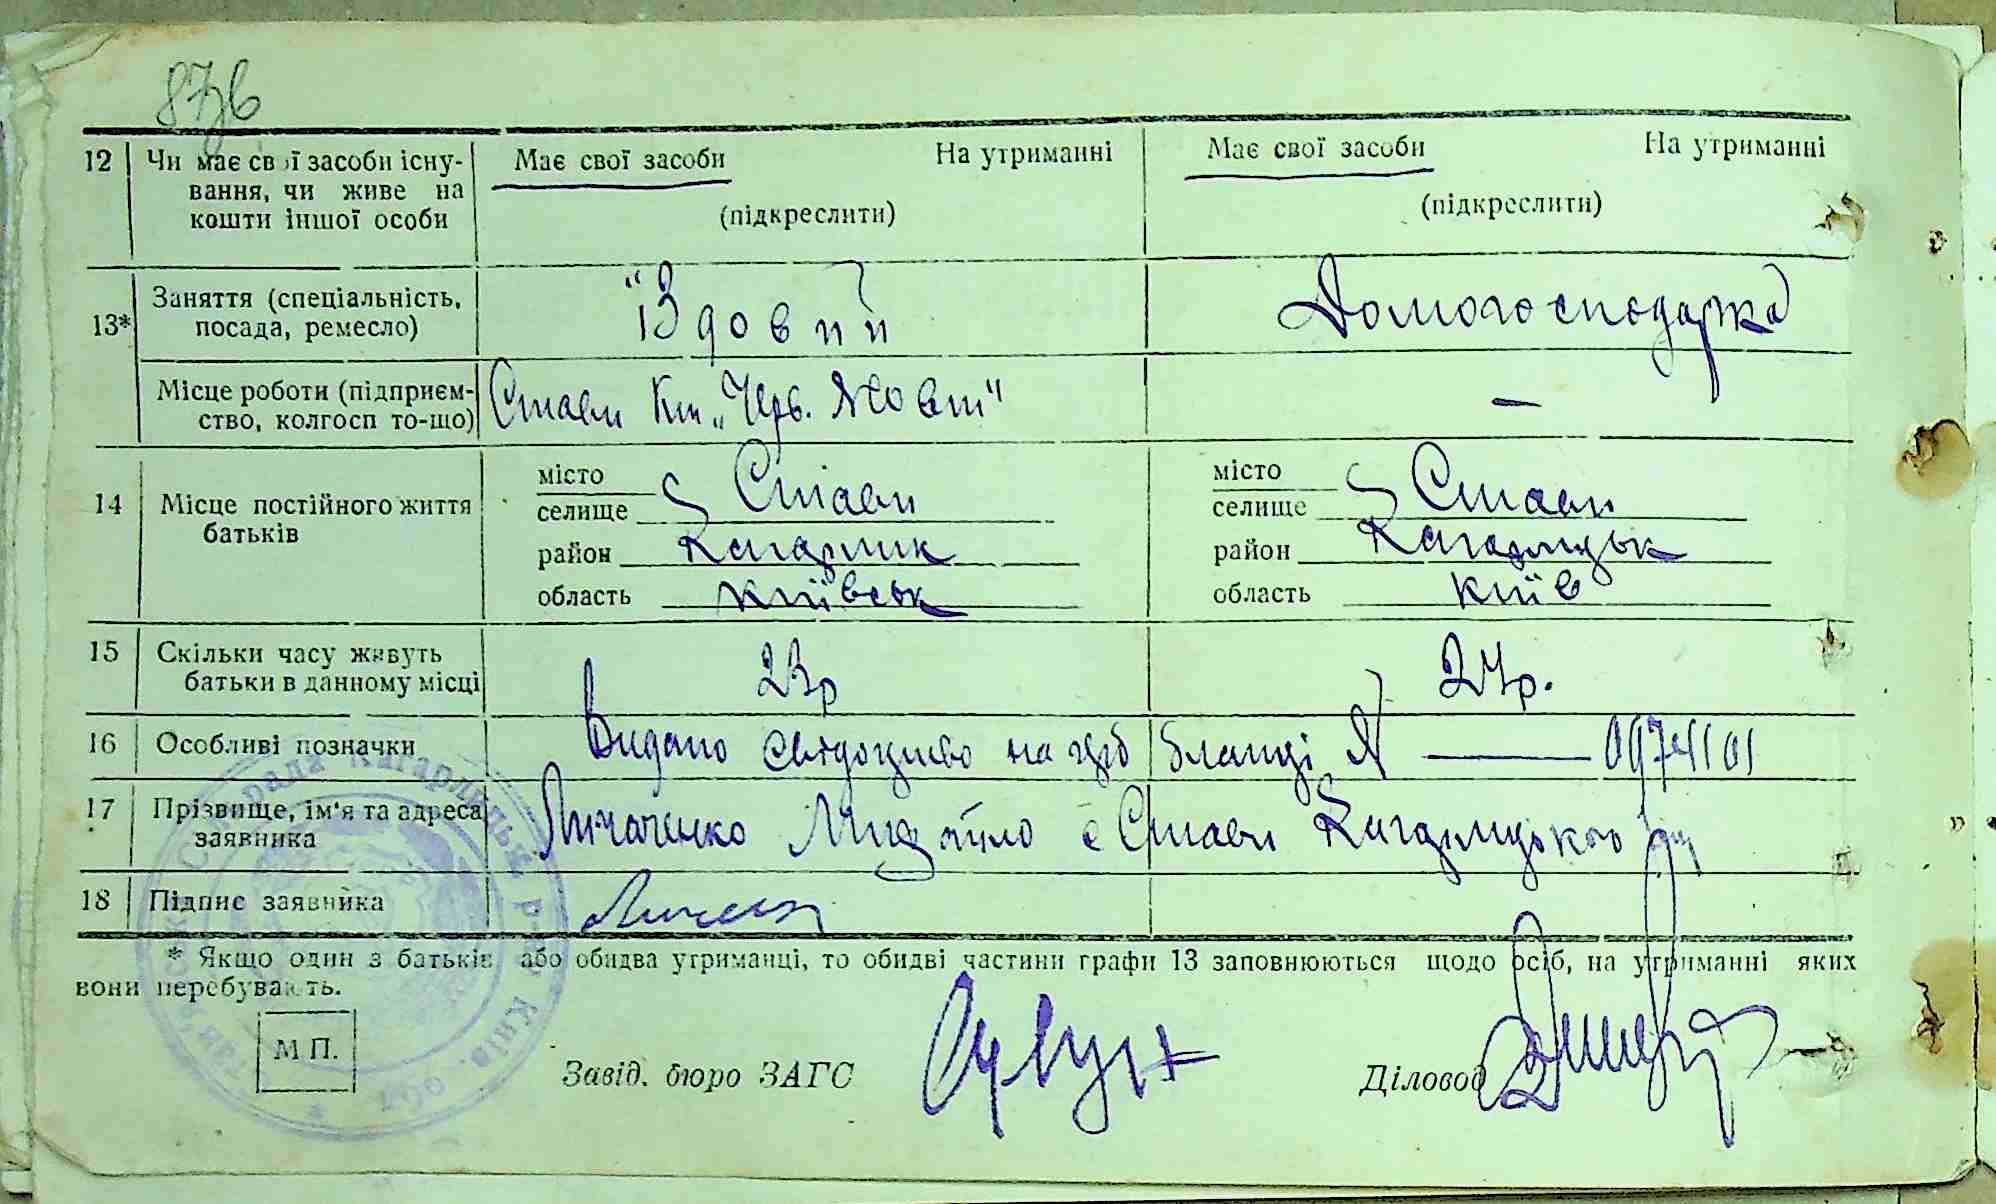 87зв
12 Чи має свої засоби існу- Має свої засоби На утриманні Має свої засоби На утриманні
вання, чи живе на
кошти іншої особи (підкреслити) (підкреслити)
13* Заняття (спеціальність, Їздовий Домогосподарка
посада, ремесло)
Місце роботи (підприєм- Стави Кп „Черв. Жовт" —
ство, колгосп то-що)
14 Місце постійного життя батьків
місто місто
селище с Стави селище с Стави
район Кагарлик район Кагарлицьк
область Київськ область Київ
15 Скільки часу живуть 23р 24р.
батьки в данному місці
16 Особливі позначки Видано свідоцтво на бланці № — 0974101
17 Прізвище, ім'я та адреса Михайло с Стави Кагарлицького
заявника
18 Підпис заявника
* Якщо один з батьків або обидва утриманці, то обидві частини графи 13 заповнюються щодо осіб, на утриманні яких
вони перебувають.
М П.
Завід. бюро ЗАГС Діловод
рада Кагарлицьк р-н Київ. обл *